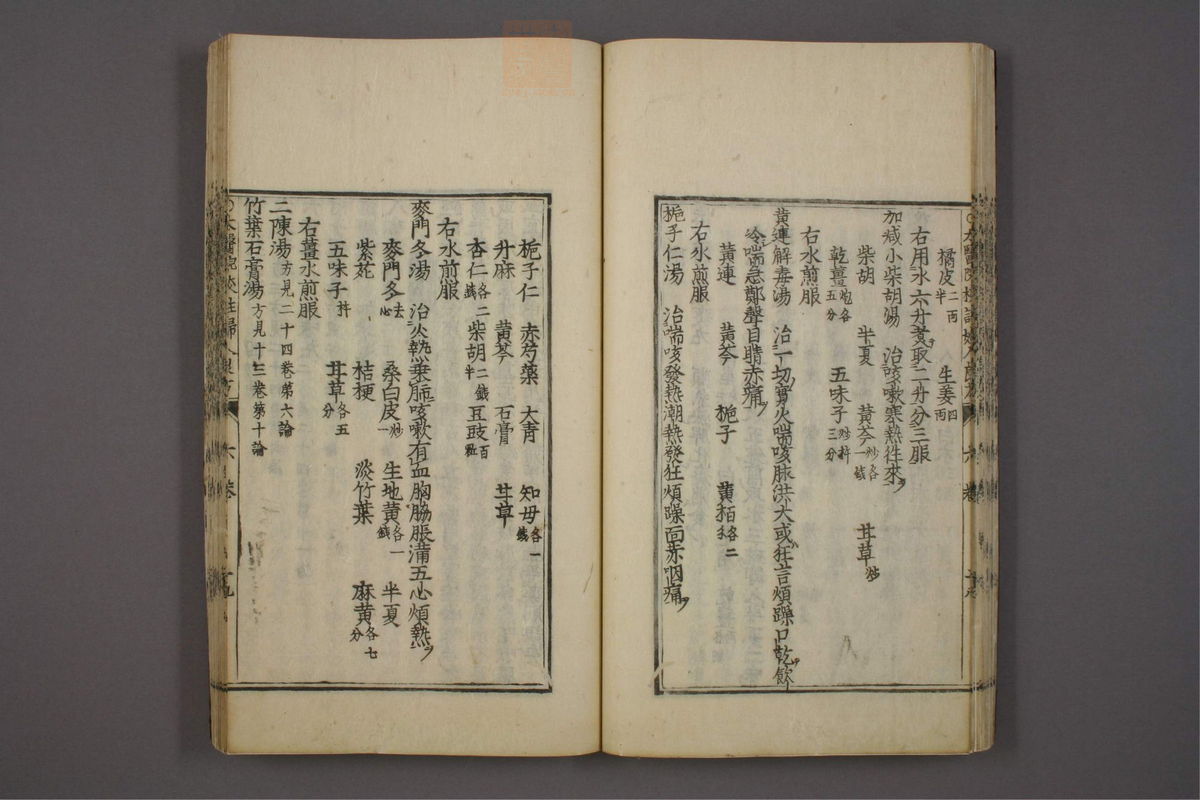 橘皮二兩半　生姜四兩
右用水六升煑取二升分三服
加减小柴胡湯　治咳嗽寒熱徃來ヲ
柴胡　半夏　黄芩炒各一錢　甘草炒
乾薑炮各五分　五味子炒杵三分
右水煎服
黄連解毒湯　治一切實火喘咳脉洪大或狂言煩躁口乾飲
冷喘急鄭聲目睛赤痛ヲ
黄連　黄芩　梔子　黄栢各二
右水煎服
梔子仁湯　治喘咳發熱潮熱發狂煩躁面赤咽痛ヲ
梔子仁　赤芍藥　大青　知母各一錢
升麻　黄芩　石膏　甘草
杏仁各二錢　柴胡二錢半　豆豉百粒
右水煎服
麥門冬湯　治火熱乗肺咳嗽有血胸膈脹滿五心煩熱ヲ
麥門冬去心　桑白皮炒一　生地黄各一錢　半夏
紫菀　桔梗　淡竹葉　麻黄各七分
五味子杵　甘草各五分
右薑水煎服
二陳湯方見二十四卷第六論
竹葉石膏湯方見十三卷第十論
六卷